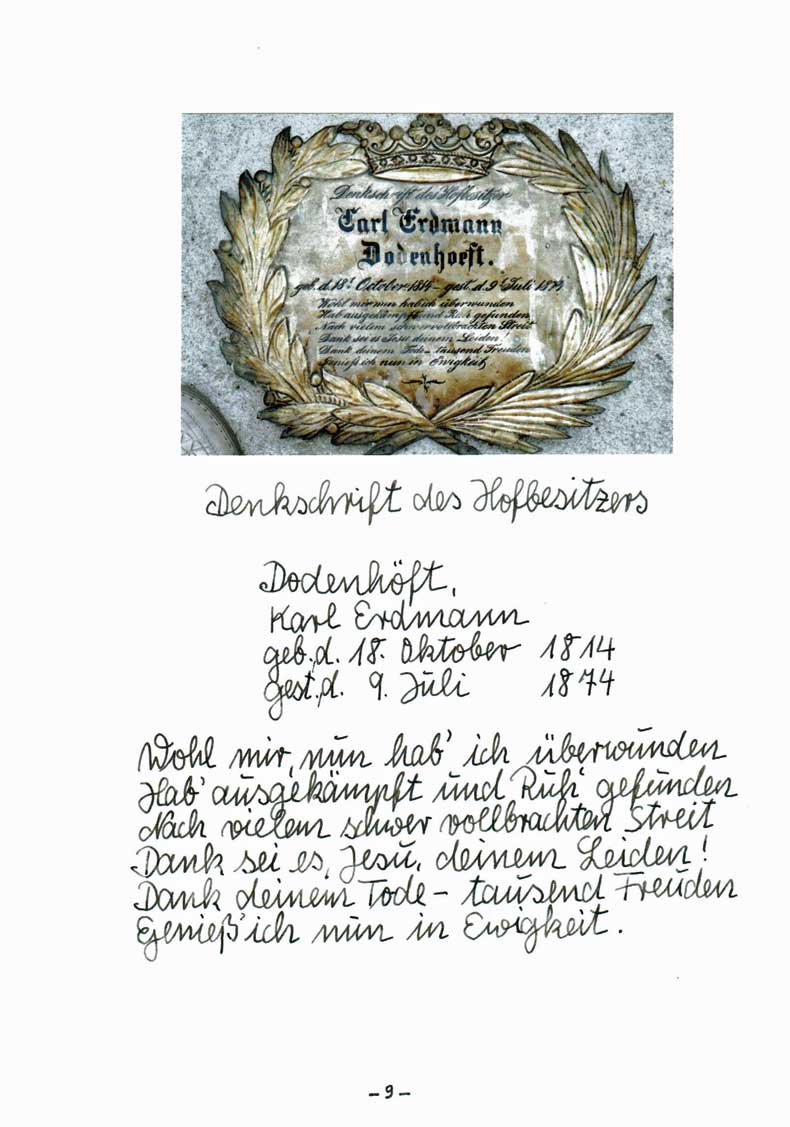 Denkschrift des Hofbesitzer
Carl Erdmann
Dodenhoeft.
geb. d. 18t October 1814 – gest. d. 9t Juli 1874
Wohl mir nun hab ich überwunden
Hab ausgekämpft und Ruh gefunden
Nach vielem schwer vollbrachten Streit
Dank sei es Jesu deinem Leiden
Dank deinem Tode – tausend Freuden
Genieß ich nun in Ewigkeit
Denkschrift des Hofbesitzers
Dodenhöft,
Karl Erdmann
geb. d. 18. Oktober 1814
gest. d. 9. Juli 1874
Wohl mir, nun hab' ich überwunden
Hab' ausgekämpft und Ruh' gefunden
Nach vielem schwer vollbrachten Streit
Dank sei es, Jesu, deinem Leiden!
Dank deinem Tode – tausend Freuden
Genieß' ich nun in Ewigkeit.
– 9 –